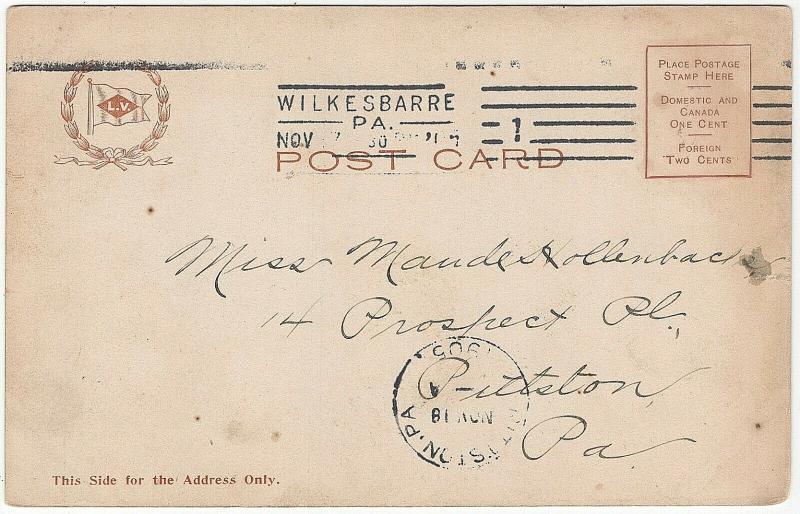 L.V.
WILKESBARRE
PA.
NOV 7 30
1
POST CARD
PLACE POSTAGE
STAMP HERE
DOMESTIC AND
CANADA
ONE CENT
FOREIGN
TWO CENTS
Miss Maude Hollenback
14 Prospect Pl.,
Pittston,
Pa.
1905
NOV 18
PITTSTON, PA
This Side for the Address Only.